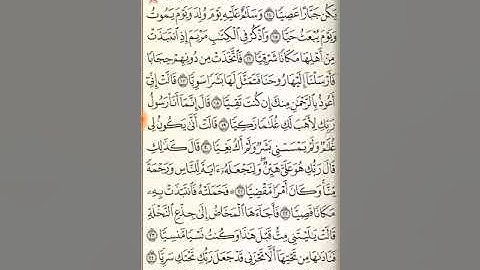 يَكُن جَبَّارًا عَصِيًّا ١٤ وَسَلَٰمٌ عَلَيْهِ يَوْمَ وُلِدَ وَيَوْمَ يَمُوتُ
وَيَوْمَ يُبْعَثُ حَيًّا ١٥ وَٱذْكُرْ فِى ٱلْكِتَٰبِ مَرْيَمَ إِذِ ٱنتَبَذَتْ
مِنْ أَهْلِهَا مَكَانًا شَرْقِيًّا ١٦ فَٱتَّخَذَتْ مِن دُونِهِمْ حِجَابًا
فَأَرْسَلْنَآ إِلَيْهَا رُوحَنَا فَتَمَثَّلَ لَهَا بَشَرًا سَوِيًّا ١٧ قَالَتْ إِنِّىٓ
أَعُوذُ بِٱلرَّحْمَٰنِ مِنكَ إِن كُنتَ تَقِيًّا ١٨ قَالَ إِنَّمَآ أَنَا۠ رَسُولُ
رَبِّكِ لِأَهَبَ لَكِ غُلَٰمًا زَكِيًّا ١٩ قَالَتْ أَنَّىٰ يَكُونُ لِى
غُلَٰمٌ وَلَمْ يَمْسَسْنِى بَشَرٌ وَلَمْ أَكُ بَغِيًّا ٢٠ قَالَ كَذَٰلِكِ
قَالَ رَبُّكِ هُوَ عَلَىَّ هَيِّنٌ ۖ وَلِنَجْعَلَهُۥٓ ءَايَةً لِّلنَّاسِ وَرَحْمَةً
مِّنَّا ۚ وَكَانَ أَمْرًا مَّقْضِيًّا ٢١ فَحَمَلَتْهُ فَٱنتَبَذَتْ بِهِۦ
مَكَانًا قَصِيًّا ٢٢ فَأَجَآءَهَا ٱلْمَخَاضُ إِلَىٰ جِذْعِ ٱلنَّخْلَةِ
قَالَتْ يَٰلَيْتَنِى مِتُّ قَبْلَ هَٰذَا وَكُنتُ نَسْيًا مَّنسِيًّا ٢٣
فَنَادَىٰهَا مِن تَحْتِهَآ أَلَّا تَحْزَنِى قَدْ جَعَلَ رَبُّكِ تَحْتَكِ سَرِيًّا ٢٤